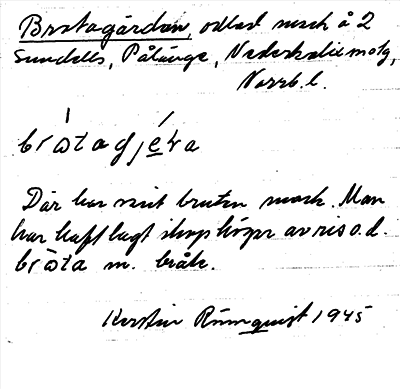 Brötagärdan, odlad mark å 2
Sundells, Pålänge, Nederkalix sn,
Norrb. l.
brö̀tagję́ṛa
Där har varit bruten mark. Man
har haft lagt ihop högar av ris o.d.
bröta m. bråte.
Kerstin Rönnquist 1945